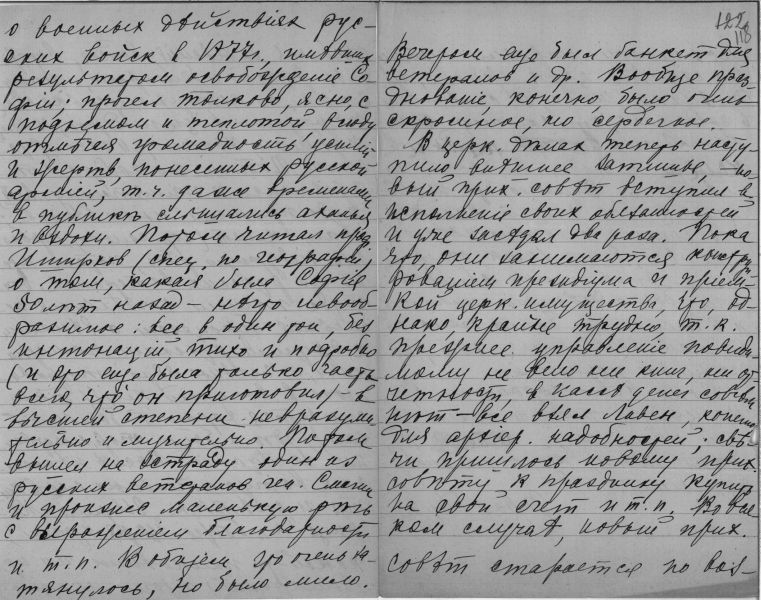 о военных дѣйствіях рус-
ских войск в 1877г., имѣвших
результатом освобожденіе Со-
фіи; прочел толково, ясно, с
подъемом и теплотой, всюду
отмѣчая громадность усилій
и жертв, понесенных Русской
арміей, т.ч. даже временами
в публикѣ слышались аханья
и вздохи. Потом читал пров.
Иширков (спец. по географіи)
о том, какая была Софія
50 лѣт назад – нѣчто невооб-
разимое: все в один тон, без
интонацій, тихо и подробно
(и это еще была только часть
всего, что он приготовил) – в
высшей степени невразуми-
тельно и мучительно. Потом
вышел на эстраду один из
русских ветеранов ген.
и произнес маленькую рѣчь
с выраженіем благодарности
и т.п. В общем это очень за-
тянулось, но было мило.
122
118
Вечером еще был банкет для
ветеранов и др. Вообще праз-
днованіе, конечно, было очень
скромное, но сердечное.
В церк. дѣлах теперь насту-
пило внѣшнее затишье, – но-
вый прих. совѣт вступил в
исполненіе своих обязанностей
и уже засѣдал два раза. Пока
что, они занимаются констру-
рованіем президіума и прием-
кой церк. имущества, что, од-
нако, крайне трудно, т.к.
прежнее управленіе повиди-
мому не вело ни книг, ни от-
четности, в кассѣ денег совсѣм
нѣт – все взял Ливен, конечно
для архіер. надобностей; свѣ-
чи пришлось новому прих.
совѣту к празднику купить
на свой счет и т.п. Во вся-
ком случаѣ, новый прих.
совѣт старается по воз-